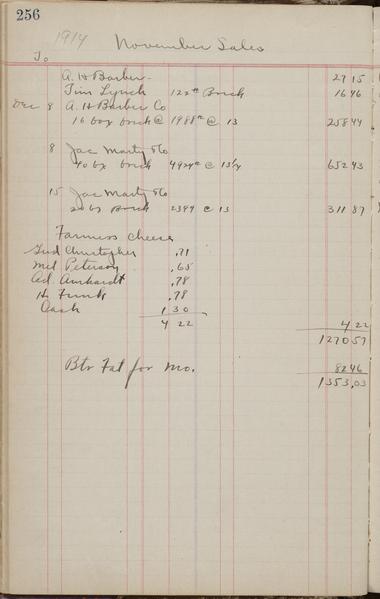 256
1914 November Sales
To
A. H Barber 27 15
Tim Lynch 122# Brick 16 46
Dec 8 A. H Barber Co
16 box brick @ 1988# @ 13 258 44
8 Jac Marty & Co
40 bx brick 4924# @ 13 1/4 652 43
15 Jac Marty & Co
20 bx Brick 2399 @ 13 311 87
Farmers Cheese
Christopher .71
Mel Peterson .65
Ad. Amhardt .78
H. Funk .78
Cash 1 30
4 22 4 22
1270 57
Btr Fat for Mo. 82 46
1353.03